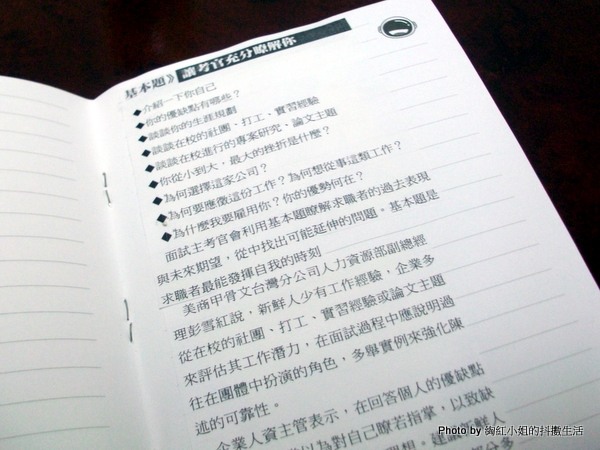 基本題》讓考官充分瞭解你
◆介紹一下你自己
◆你的優缺點有哪些?
◆談談你的生涯規劃
◆談談在校的社團、打工、實習經驗
◆談談在校進行的專案研究、論文主題
◆你從小到大,最大的挫折是什麼?
◆為何選擇這家公司?
◆為何要應徵這份工作?為何想從事這類工作?
◆為什麼我要雇用你?你的優勢何在?
面試主考官會利用基本題瞭解求職者的過去表現
與未來期望,從中找出可能延伸的問題。基本題是
求職者最能發揮自我的時刻
美商甲骨文台灣分公司人力資源部副總經
理彭雪紅說,新鮮人少有工作經驗,企業多
從在校的社團、打工、實習經驗或論文主題
來評估其工作潛力,在面試過程中應說明過
往在團體中扮演的角色,多舉實例來強化陳
述的可靠性。
企業人資主管表示,在回答個人的優缺點
以為對自己瞭若指掌,以致缺
理想。建議新鮮人
部分多
Photo by 絢紅小姐的抖擻生活